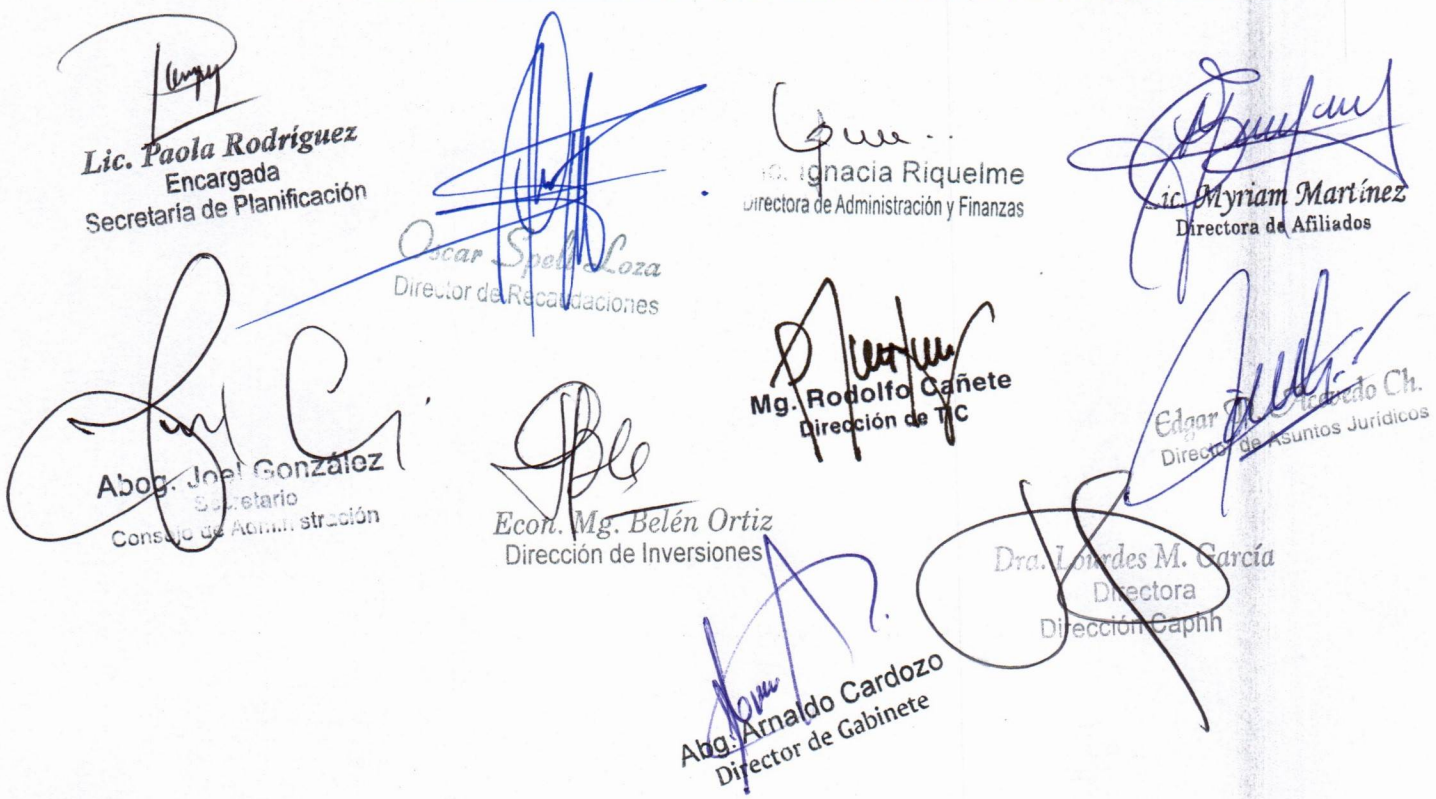 Lic. Paola Rodríguez
Encargada
Secretaría de Planificación
Oscar Spell Loza
Director de Recaudaciones
Ignacia Riquelme
Directora de Administración y Finanzas
Lic. Myriam Martínez
Directora de Afiliados
Abog. Joel González
Secretario
Consejo de Administración
Econ. Mg. Belén Ortiz
Dirección de Inversiones
Mg. Rodolfo Cañete
Dirección de TIC
Edgar Acevedo Ch.
Director de Asuntos Jurídicos
Dra. Lourdes M. García
Directora
Dirección Caphh
Abg. Arnaldo Cardozo
Director de Gabinete